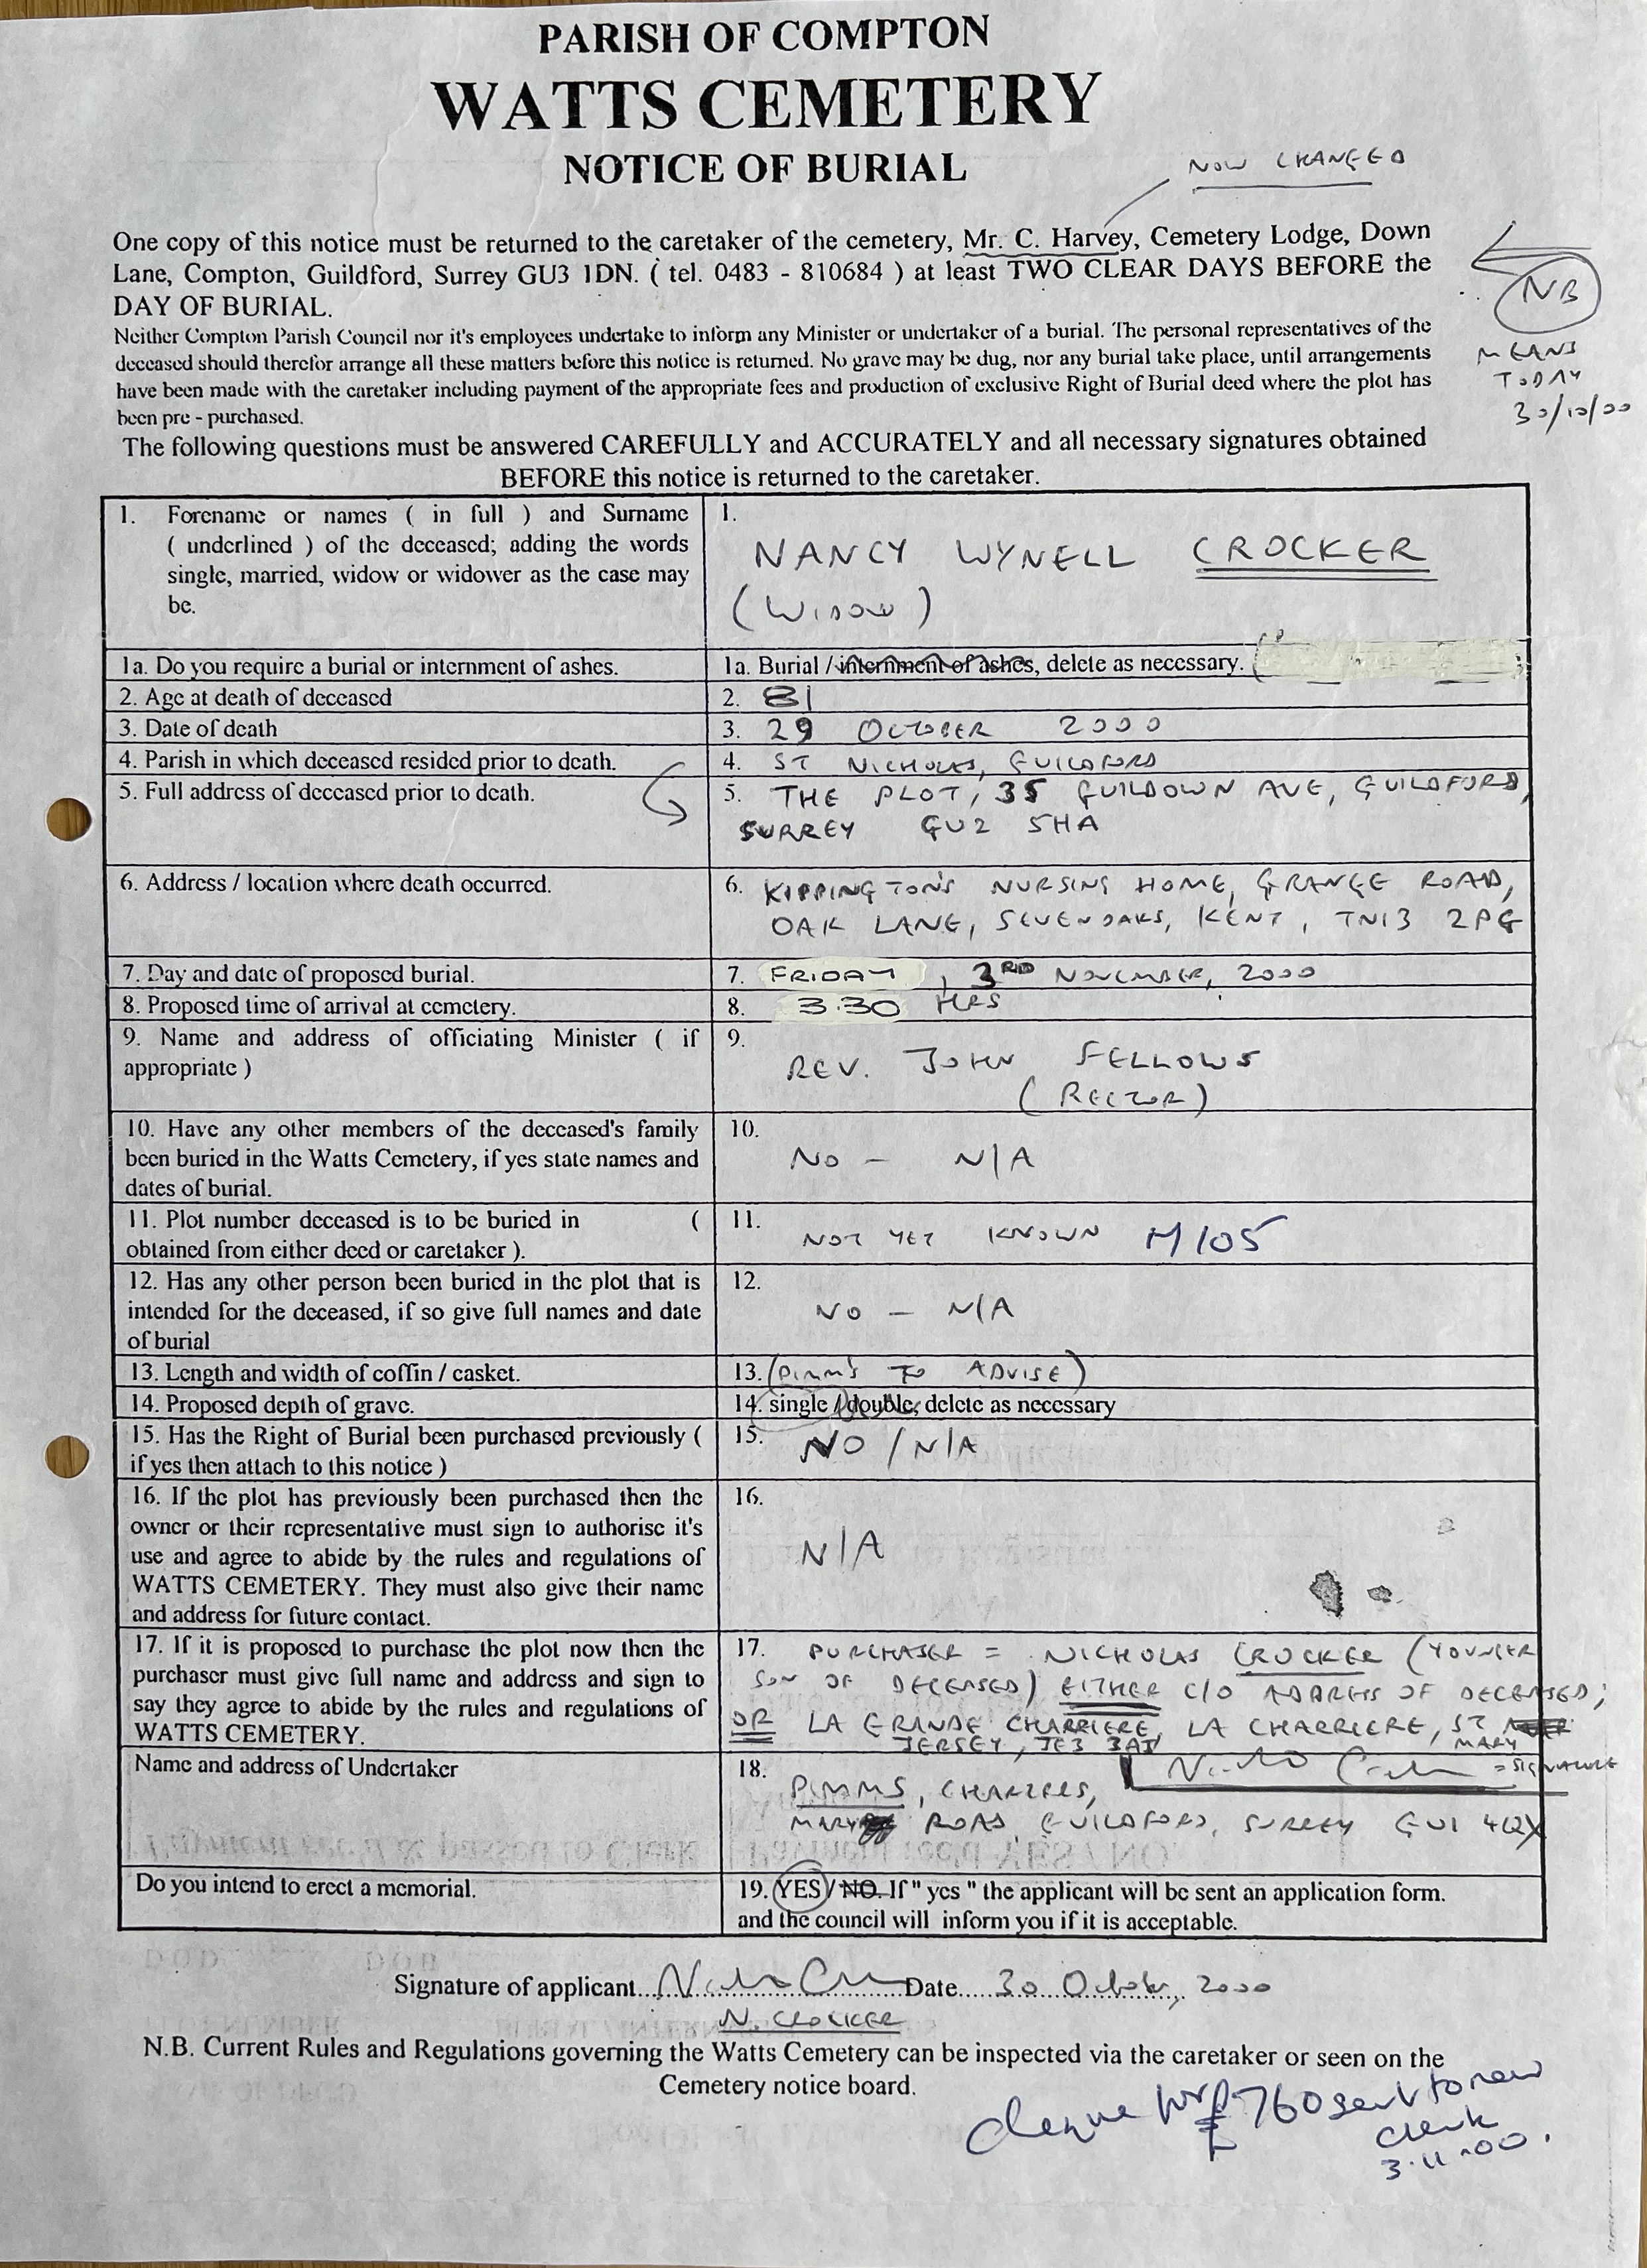 PARISH OF COMPTON
WATTS CEMETERY
NOTICE OF BURIAL
NOW CHANGED
One copy of this notice must be returned to the caretaker of the cemetery, Mr. C. Harvey, Cemetery Lodge, Down
Lane, Compton, Guildford, Surrey GU3 1DN. ( tel. 0483 - 810684 ) at least TWO CLEAR DAYS BEFORE the
DAY OF BURIAL.
NB
MEANS
TODAY
30/10/00
Neither Compton Parish Council nor it's employees undertake to inform any Minister or undertaker of a burial. The personal representatives of the
deceased should therefor arrange all these matters before this notice is returned. No grave may be dug, nor any burial take place, until arrangements
have been made with the caretaker including payment of the appropriate fees and production of exclusive Right of Burial deed where the plot has
been pre - purchased.
The following questions must be answered CAREFULLY and ACCURATELY and all necessary signatures obtained
BEFORE this notice is returned to the caretaker.
1. Forename or names ( in full ) and Surname
( underlined ) of the deceased; adding the words
single, married, widow or widower as the case may
be.
1.
NANCY WYNELL CROCKER
(WIDOW)
1a. Do you require a burial or internment of ashes.
1a. Burial / internment of ashes, delete as necessary.
2. Age at death of deceased
2. 81
3. Date of death
3. 29 OCTOBER 2000
4. Parish in which deceased resided prior to death.
4. ST NICHOLAS, GUILDFORD
5. Full address of deceased prior to death.
5. THE PLOT, 35 GUILDOWN AVE, GUILDFORD,
SURREY GU2 5HA
6. Address / location where death occurred.
6. KIPPINGTON'S NURSING HOME, GRANGE ROAD,
OAK LANE, SEVENOAKS, KENT, TN13 2PG
7. Day and date of proposed burial.
7. FRIDAY, 3RD NOVEMBER, 2000
8. Proposed time of arrival at cemetery.
8. 3.30 HRS
9. Name and address of officiating Minister ( if
appropriate )
9.
REV. JOHN FELLOWS
(RECTOR)
10. Have any other members of the deceased's family
been buried in the Watts Cemetery, if yes state names and
dates of burial.
10.
NO - N/A
11. Plot number deceased is to be buried in (
obtained from either deed or caretaker ).
11.
NOT YET KNOWN M105
12. Has any other person been buried in the plot that is
intended for the deceased, if so give full names and date
of burial
12.
NO - N/A
13. Length and width of coffin / casket.
13. (PIMM'S TO ADVISE)
14. Proposed depth of grave.
14. single / double, delete as necessary
15. Has the Right of Burial been purchased previously (
if yes then attach to this notice )
15. NO / N/A
16. If the plot has previously been purchased then the
owner or their representative must sign to authorise it's
use and agree to abide by the rules and regulations of
WATTS CEMETERY. They must also give their name
and address for future contact.
16.
N/A
17. If it is proposed to purchase the plot now then the
purchaser must give full name and address and sign to
say they agree to abide by the rules and regulations of
WATTS CEMETERY.
17. PURCHASER = NICHOLAS CROCKER (YOUNGER
SON OF DECEASED) EITHER C/O ADDRESS OF DECEASED;
OR LA GRANDE CHARRIERE, LA CHARRIERE, ST MARY
JERSEY, JE3 3AJ
= SIGNATURE
Name and address of Undertaker
18.
PIMMS, CHARTERS,
MARY ROAD, GUILDFORD, SURREY GU1 4QX
Do you intend to erect a memorial.
19. YES / NO. If " yes " the applicant will be sent an application form.
and the council will inform you if it is acceptable.
Signature of applicant Date 30 October, 2000
N. CROCKER
N.B. Current Rules and Regulations governing the Watts Cemetery can be inspected via the caretaker or seen on the
Cemetery notice board.
Cheque for £760 sent to new
clerk
3.11.00.